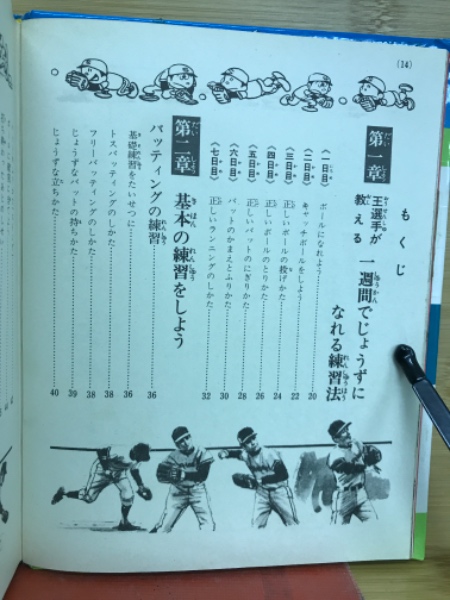 (14)
もくじ
第一章
王選手が
教える
一週間でじょうずに
なれる練習法
〈一日目〉 ボールになれよう 20
〈二日目〉 キャッチボールをしよう 22
〈三日目〉 正しいボールの投げかた 24
〈四日目〉 正しいボールのとりかた 26
〈五日目〉 正しいバットのにぎりかた 28
〈六日目〉 バットのかまえとふりかた 30
〈七日目〉 正しいランニングのしかた 32
第二章
基本の練習をしよう
バッティングの練習 36
基礎練習をたいせつに 36
トスバッティングのしかた 38
フリーバッティングのしかた 38
じょうずなバットの持ちかた 39
じょうずな立ちかた 40